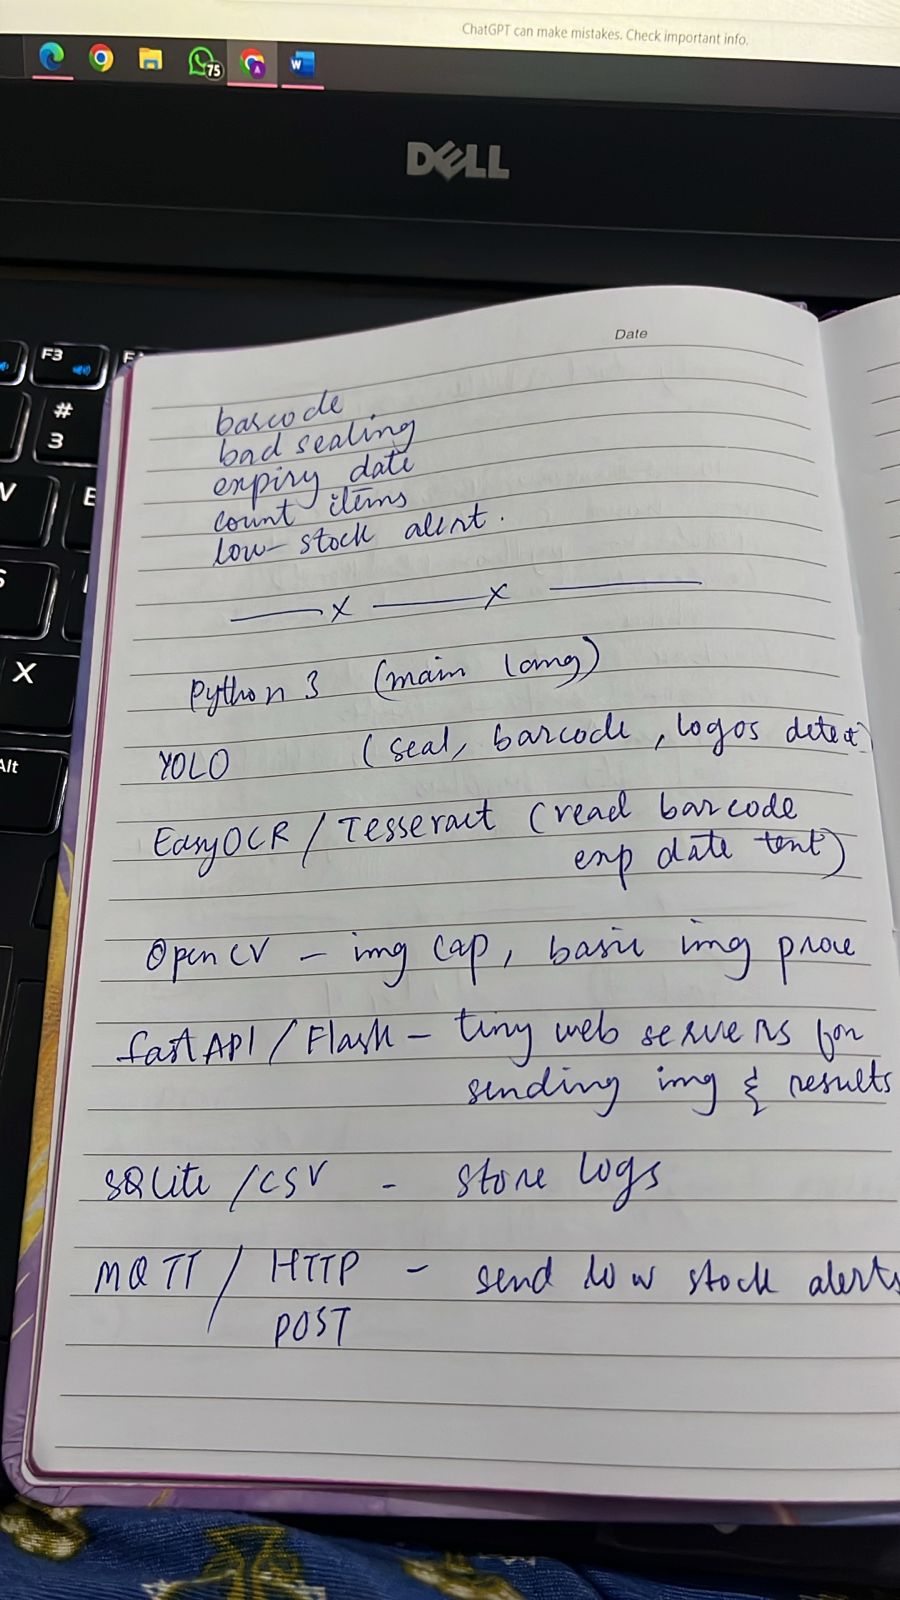 ChatGPT can make mistakes. Check important info.
75
W
DELL
F3
#
3
V
E
S
X
Alt
Date
barcode
bad sealing
expiry date
count items
low-stock alert.
x x
Python 3 (main lang)
YOLO (seal, barcode, logos detect)
EasyOCR / Tesseract (read barcode
exp date text)
OpenCV - img cap, basic img proce
fastAPI / Flask - tiny web servers for
sending img & results
SQLite / CSV - store logs
MQTT / HTTP - send low stock alerts
POST